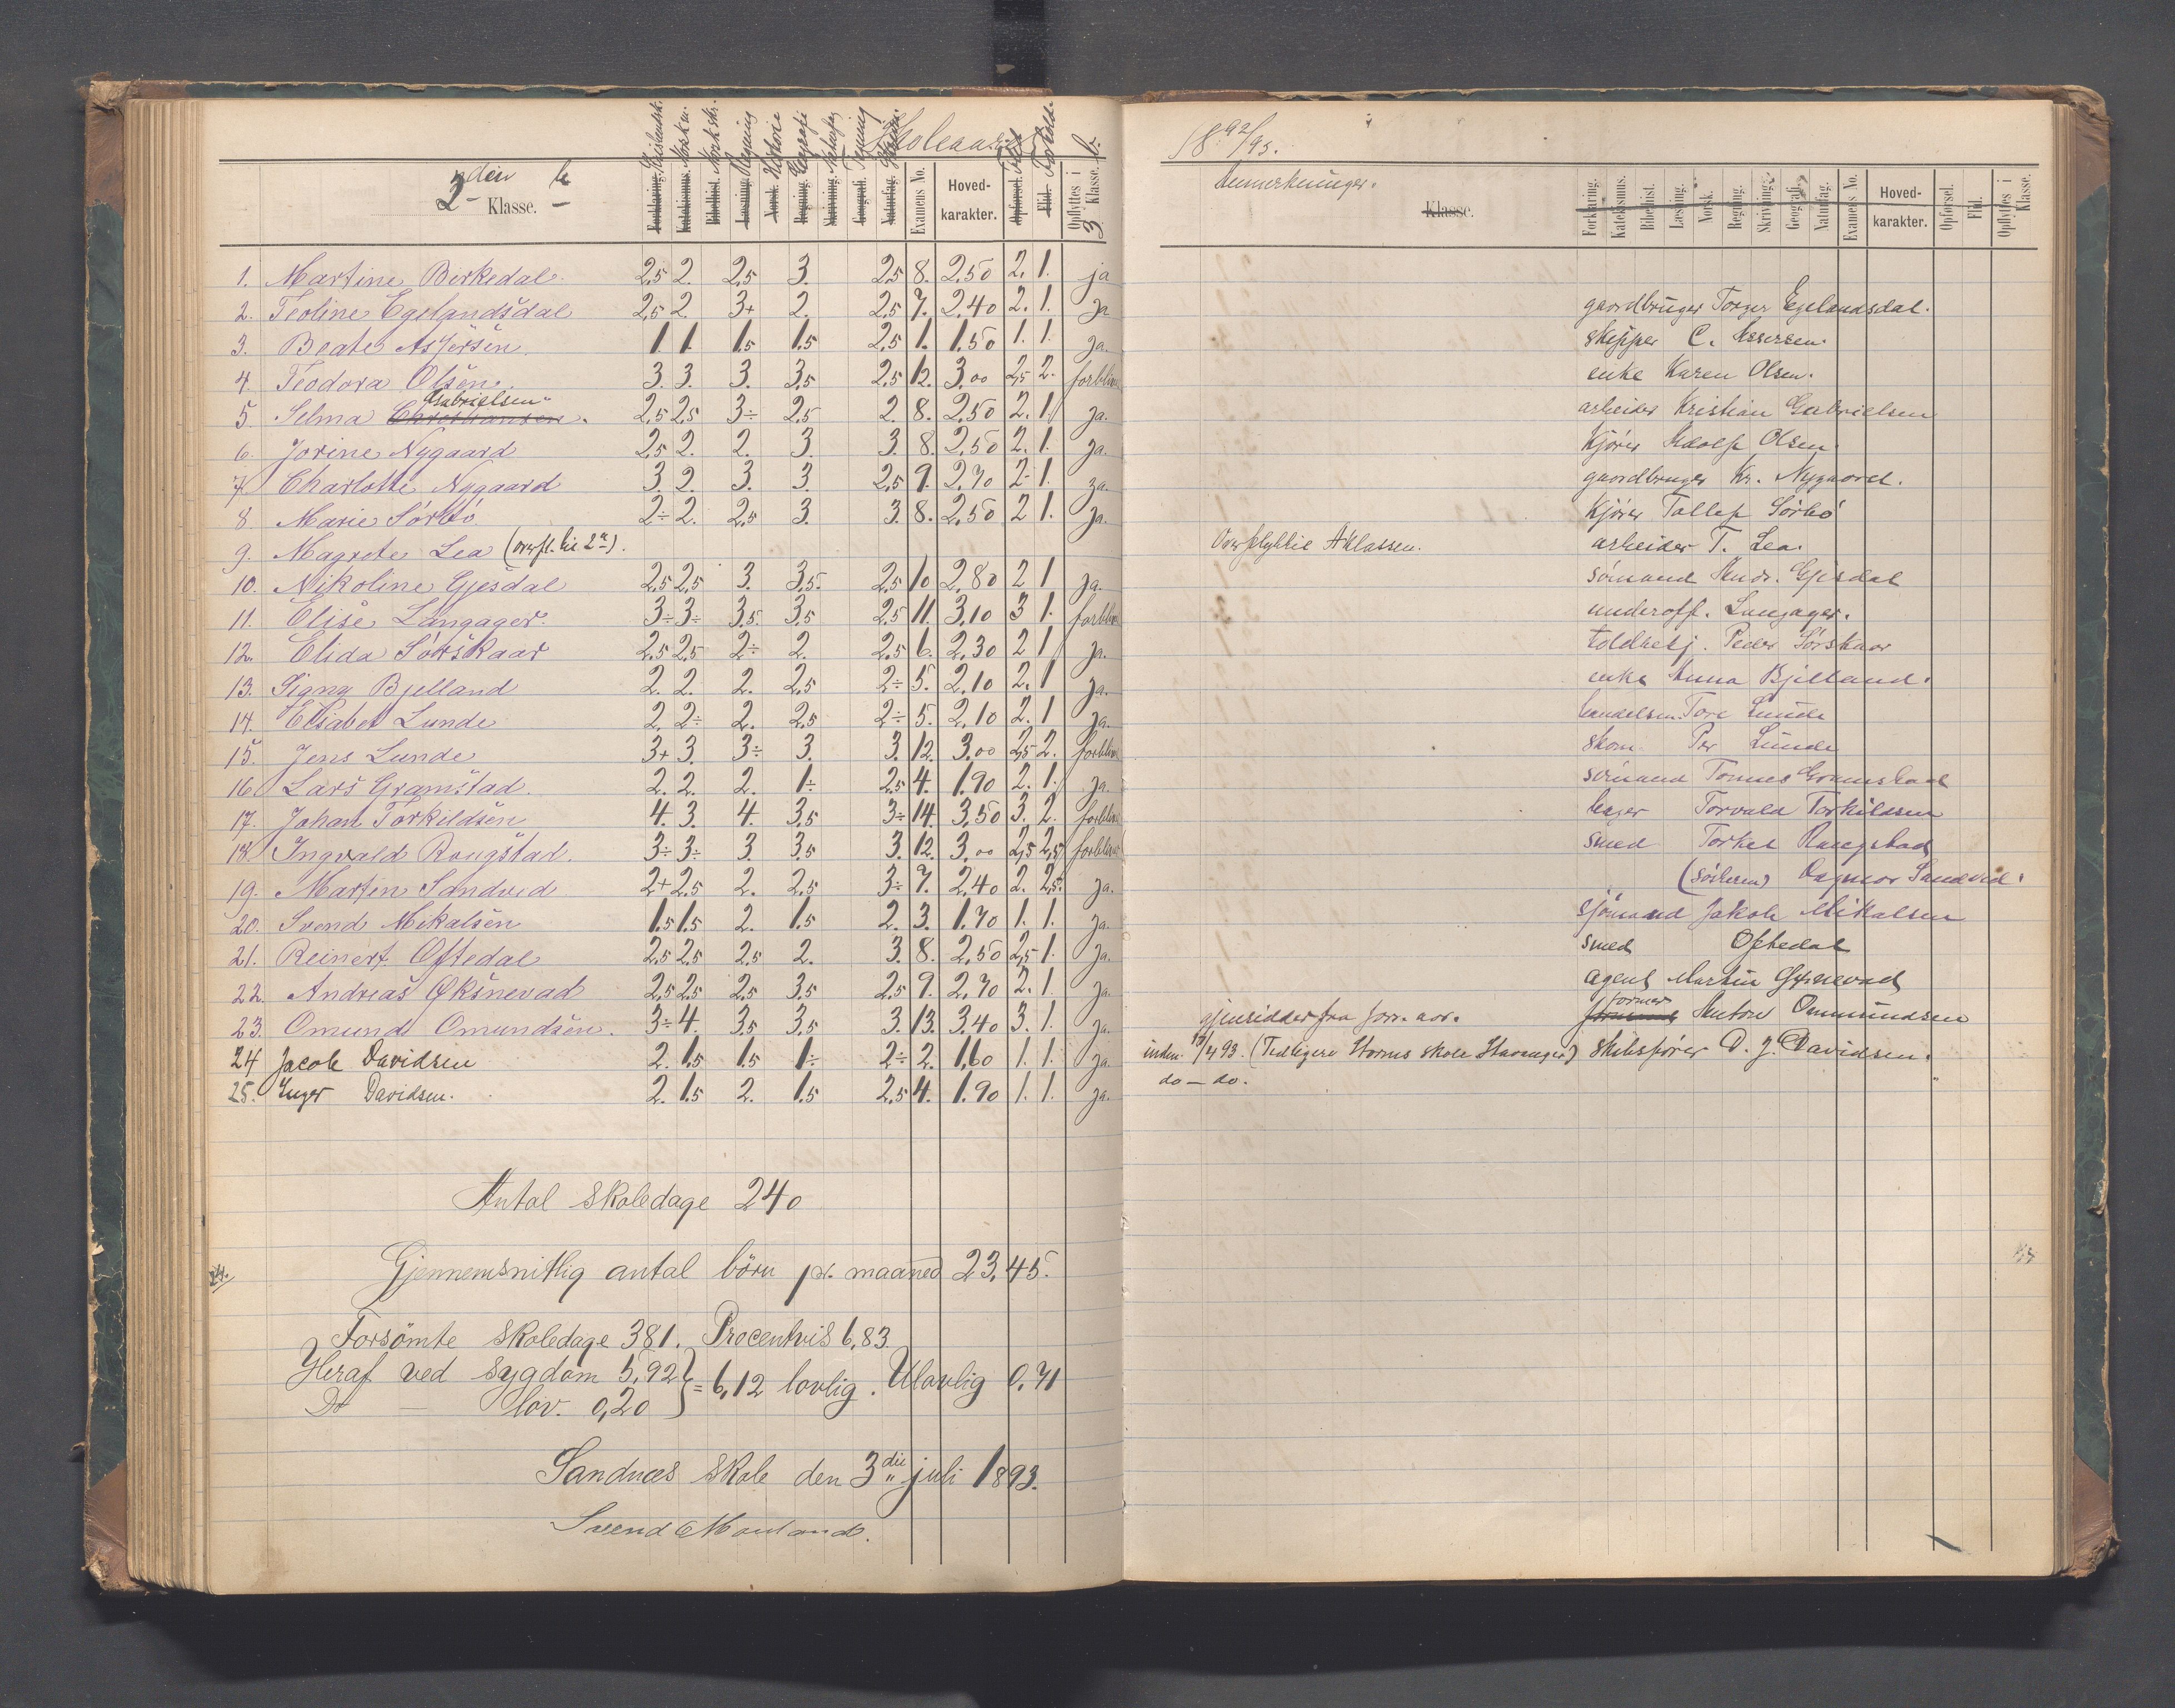 Skoleaaret 1892/93.
2den b Klasse.
Kristendk. Norsk m. Norsk skr. Regning Historie Geografi Naturfag Tegning Skrivn. Flid Forhold.
Forklaring. Katekismus. Bibelhist. Læsning. Norsk. Regning. Skrivning. Geografi. Naturfag. Examens No. Hoved-karakter. Opførsel. Flid. Opflyttes i 3 Klasse. b.
1. Martine Birkedal. 2,5 2. 2,5 3. 2,5 8. 2,50 2. 1. ja
2. Teoline Egelandsdal 2,5 2. 3+ 2. 2,5 7. 2,40 2. 1. ja
3. Beate Assersen. 1. 1. 1,5 1,5 2,5 1. 1,50 1. 1. ja.
4. Teodora Olsen. 3. 3. 3. 3,5 2,5 12. 3,00 2,5 2. forbliver
5. Selma Christiansen. Gabrielsen 2,5 2,5 3÷ 2,5 2. 8. 2,50 2. 1. ja.
6. Jorine Nygaard 2,5 2. 2. 3. 3. 8. 2,50 2. 1. ja.
7. Charlotte Nygaard 3. 2. 3. 3. 2,5 9. 2,70 2- 1. ja.
8. Marie Sörbö 2÷ 2. 2,5 3. 3. 8. 2,50 2 1. ja.
9. Magrete Lea (overfl. til 2a).
10. Nikoline Gjesdal 2,5 2,5 3. 3,5 2,5 10 2,80 2 1 ja.
11. Elise Langager. 3÷ 3÷ 3,5 3,5 2,5 11. 3,10 3 1. forbliver
12. Elida Sörskaar 2,5 2,5 2÷ 2. 2,5 6. 2,30 2 1 ja.
13. Signy Bjelland 2. 2. 2. 2,5 2÷ 5. 2,10 2. 1 ja.
14. Elisabet Lunde 2. 2÷ 2. 2,5 2÷ 5. 2,10 2. 1 ja.
15. Jens Lunde 3+ 3. 3÷ 3. 3. 12. 3,00 2,5 2. forbliver
16. Lars Gramstad. 2. 2. 2. 1÷ 2,5 4. 1,90 2. 1. ja.
17. Johan Torkildsen 4. 3. 4. 3,5 3÷ 14. 3,50 3. 2. forbliver
18. Ingvald Rougstad. 3÷ 3÷ 3. 3,5 3. 12. 3,00 2,5 2,5 forbliver
19. Martin Sandved 2+ 2,5 2. 2,5 3÷ 7. 2,40 2. 2,5. ja.
20. Svend Mikalsen 1,5 1,5 2. 1,5 2. 3. 1,70 1. 1. ja.
21. Reinert Oftedal 2,5 2,5 2,5 2. 3. 8. 2,50 2,5 1. ja.
22. Andreas Öksnevad 2,5 2,5 2,5 3,5 2,5 9. 2,70 2. 1. ja.
23. Omund Omundsen. 3÷ 4. 3,5 3,5 3. 13. 3,40 3. 1. ja.
24 Jacob Davidsen 2. 1,5 1,5 1÷ 2÷ 2. 1,60 1. 1. ja.
25. Inger Davidsen. 2. 1,5 2. 1,5 2,5 4. 1,90 1. 1. ja.
Antal skoledage 240
Gjennemsnitlig antal börn pr. maaned 23,45.
Forsömte skoledage 381. Procentvis 6,83.
Heraf ved sygdom 5,92 } = 6,12 lovlig. Ulovlig 0,71
Do — lov. 0,20
Sandnæs skole den 3die juli 1893.
Svend Mauland.
Anmerkninger.
Klasse.
Forklaring. Katekismus. Bibelhist. Læsning. Norsk. Regning. Skrivning. Geografi. Naturfag. Examens No. Hoved-karakter. Opførsel. Flid. Opflyttes i Klasse.
gaardbruger Torger Egelandsdal.
skipper C. Assersen.
enke Karen Olsen.
arbeider Kristian Gabrielsen
kjörer Adolf Olsen
gaardbruger Kr. Nygaard.
kjörer Tollef Sörbö
Overflyttet til A klassen. arbeider T. Lea.
sömand Andr. Gjesdal
underoff. Langager.
toldbetj. Peder Sörskaar
enke Anna Bjelland.
handelsm. Tore Lunde
skom. Per Lunde
sömand Tönnes Gramstad
bager Torvald Torkildsen
smed Torkel Raugstad
(sösteren) Dagmar Sandved.
sjömand Jakob Mikalsen
smed Oftedal
agent Martin Öxnevad
gjensidder fra forr. aar. former Anton Ommundsen
inden 13/4 93. (Tidligere Storms skole Stavanger) skibsförer D. J. Davidsen.
do — do. "